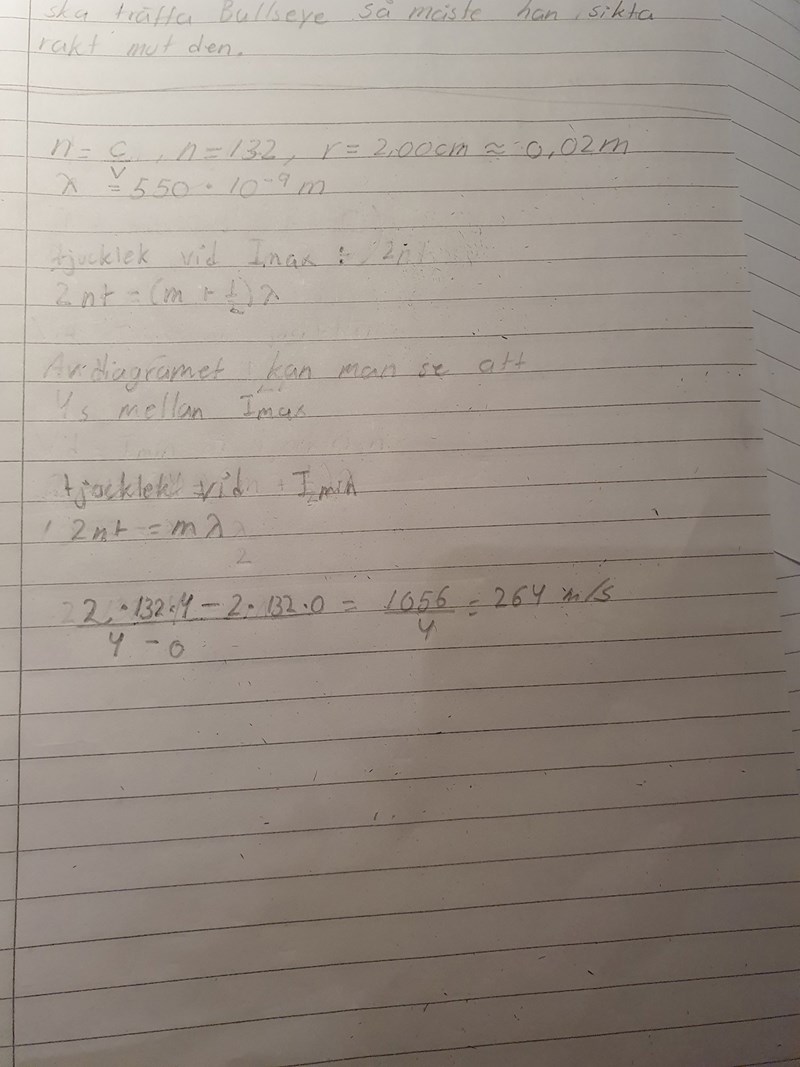 ska träffa Bullseye så måste han sikta
rakt mot den.
n = c/v, n = 132, r = 2,00cm ≈ 0,02m
λ = 550 · 10⁻⁹ m
tjocklek vid Imax : 2n
2nt = (m + 1/2) λ
Av diagramet kan man se att
4s mellan Imax
tjocklek vid Imin
2nt = mλ
2 · 132 · 4 - 2 · 132 · 0 / 4 - 0 = 1056 / 4 = 264 m/s